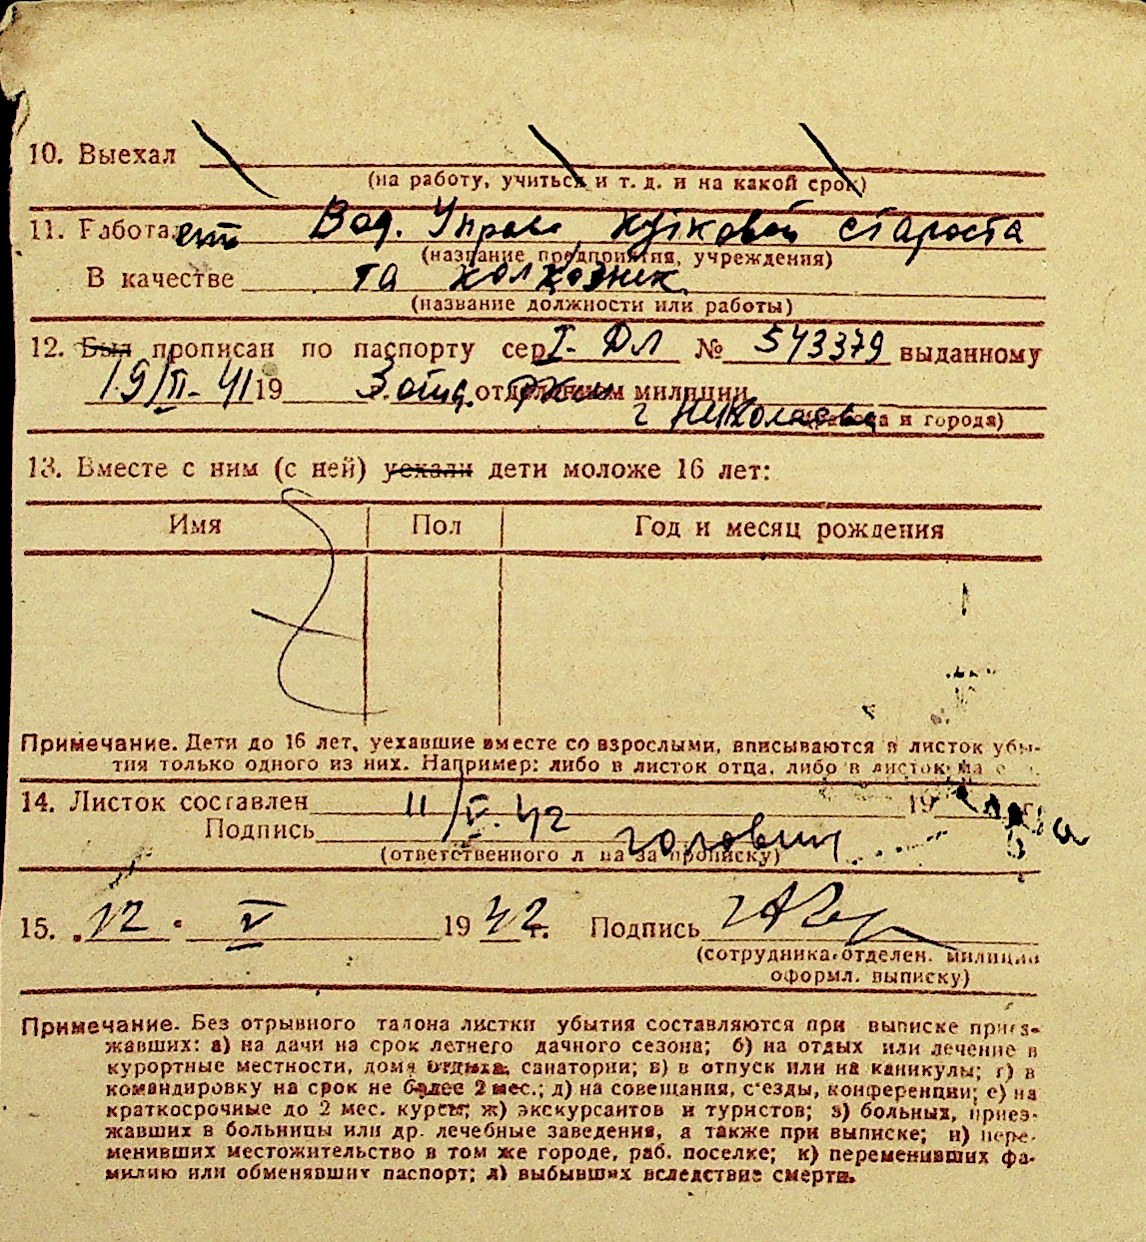 10. Выехал
(на работу, учиться и т. д. и на какой срок)
11. Работает Вод. Управ. кутковой староста
(название предприятия, учреждения)
В качестве та колхозник
(название должности или работы)
12. Был прописан по паспорту сер. I-ДЛ № 543379 выданному
19/II-41 19 3 отд. отделением милиции
г Николаева
(района и города)
13. Вместе с ним (с ней) уехали дети моложе 16 лет:
Имя Пол Год и месяц рождения
Примечание. Дети до 16 лет, уехавшие вместе со взрослыми, вписываются в листок убы-
тия только одного из них. Например: либо в листок отца, либо в листок
14. Листок составлен 11/V. 42 19 г.
Подпись Головин
(ответственного лица за прописку)
15. 12 V 1942 г. Подпись
(сотрудника отделен. милиции
оформл. выписку)
Примечание. Без отрывного талона листки убытия составляются при выписке приез-
жавших: а) на дачи на срок летнего дачного сезона; б) на отдых или лечение в
курортные местности, дома отдыха, санатории; в) в отпуск или на каникулы; г) в
командировку на срок не более 2 мес.; д) на совещания, с'езды, конференции; е) на
краткосрочные до 2 мес. курсы; ж) экскурсантов и туристов; з) больных, приез-
жавших в больницы или др. лечебные заведения, а также при выписке; и) пере-
менивших местожительство в том же городе, раб. поселке; к) переменивших фа-
милию или обменявших паспорт; л) выбывших вследствие смерти.